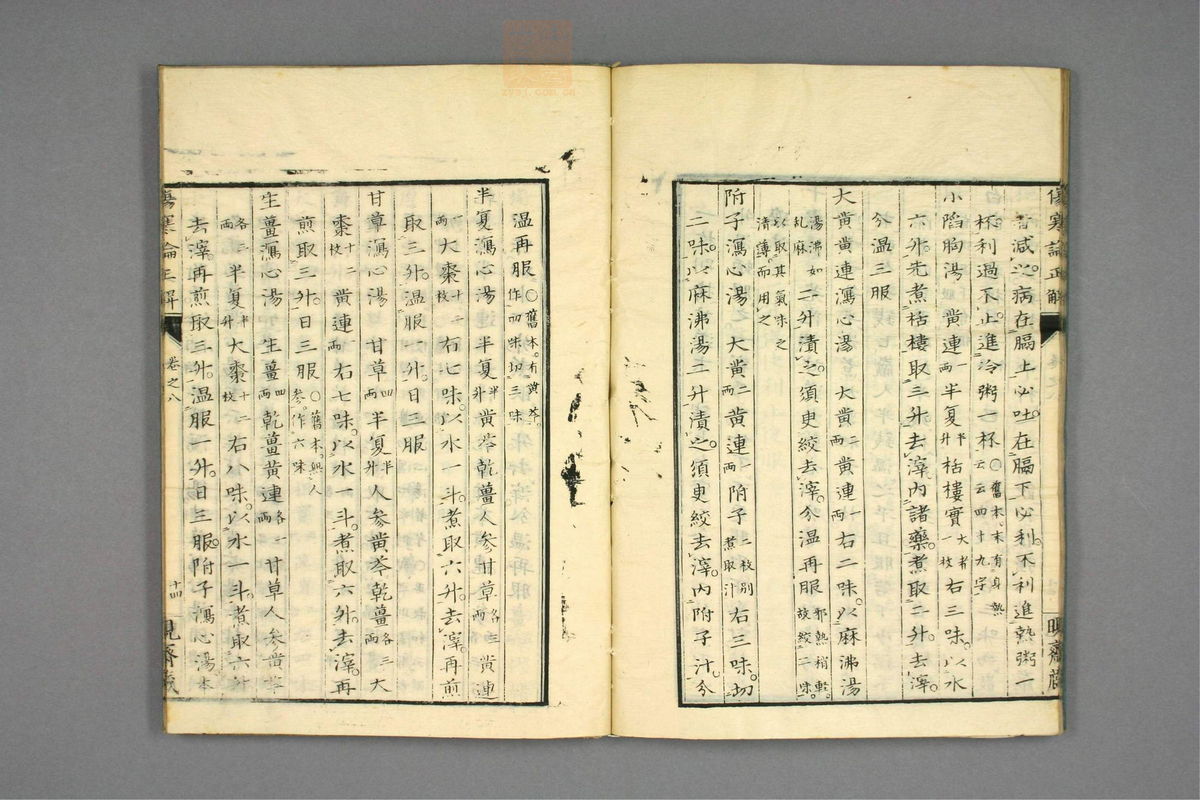 者減之。病在膈上必吐。在膈下必利。不利進熱粥一
杯。利過不止。進冷粥一杯〇舊本。末有身熱云云四十九字
小陷胸湯 黄連一兩半夏半升栝樓實大者一枚右三味。以水
六升。先煮栝樓取三升。去滓。内諸藥。煮取二升。去滓。
分温三服
大黄黄連瀉心湯 大黄二兩黄連一兩右二味。以麻沸湯
湯沸如乱麻二升漬之。須更絞去滓。分温再服邪熱稍輕。故絞二味。
以取其氣味之清薄而用之
附子瀉心湯 大黄二兩黄連一兩附子一枚別煮取汁右三味。切
二味。以麻沸湯二升漬之。須更絞去滓。内附子汁。分
傷寒論正解
温再服〇舊本。有黄芩。作四味切三味
半夏瀉心湯 半夏半升黄芩乾薑人參甘草各三兩黄連
一兩大棗十二枚右七味。以水一斗。煮取六升。去滓。再煎
取三升。温服一升。日三服
甘草瀉心湯 甘草四兩半夏半升人參黄芩乾薑各三兩大
棗十二枚黄連一兩右七味。以水一斗。煮取六升。去滓。再
煎取三升。日三服〇舊本。無人參。作六味
生薑瀉心湯 生薑四兩乾薑黄連各一兩甘草人參黄芩
各三兩半夏半升大棗十二枚右八味。以水一斗。煮取六升
去滓。再煎取三升。温服一升。日三服。附子瀉心湯本
傷寒論正解 卷之八 十四